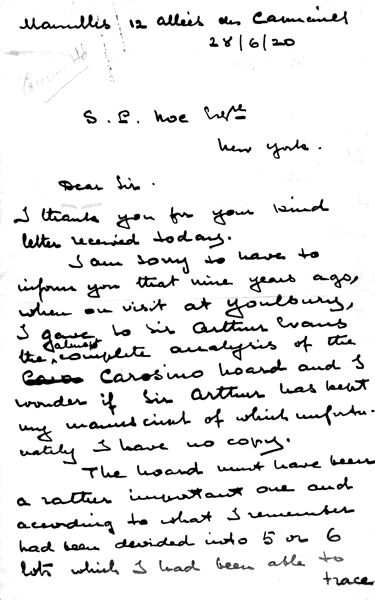 Marseilles 12 Allées des Capucines
28/6/20
S. P. Noe Esqre
New York.
Dear Sir.
I thank you for your kind
letter received today.
I am sorry to have to
inform you that nine years ago,
when on visit at Youlbury,
I gave to Sir Arthur Evans
the almost complete analysis of the
Carosino hoard and I
wonder if Sir Arthur has kept
my manuscript of which unfortu-
nately I have no copy.
The hoard must have been
a rather important one and
according to what I remember
had been devided into 5 or 6
lots which I had been able to
trace